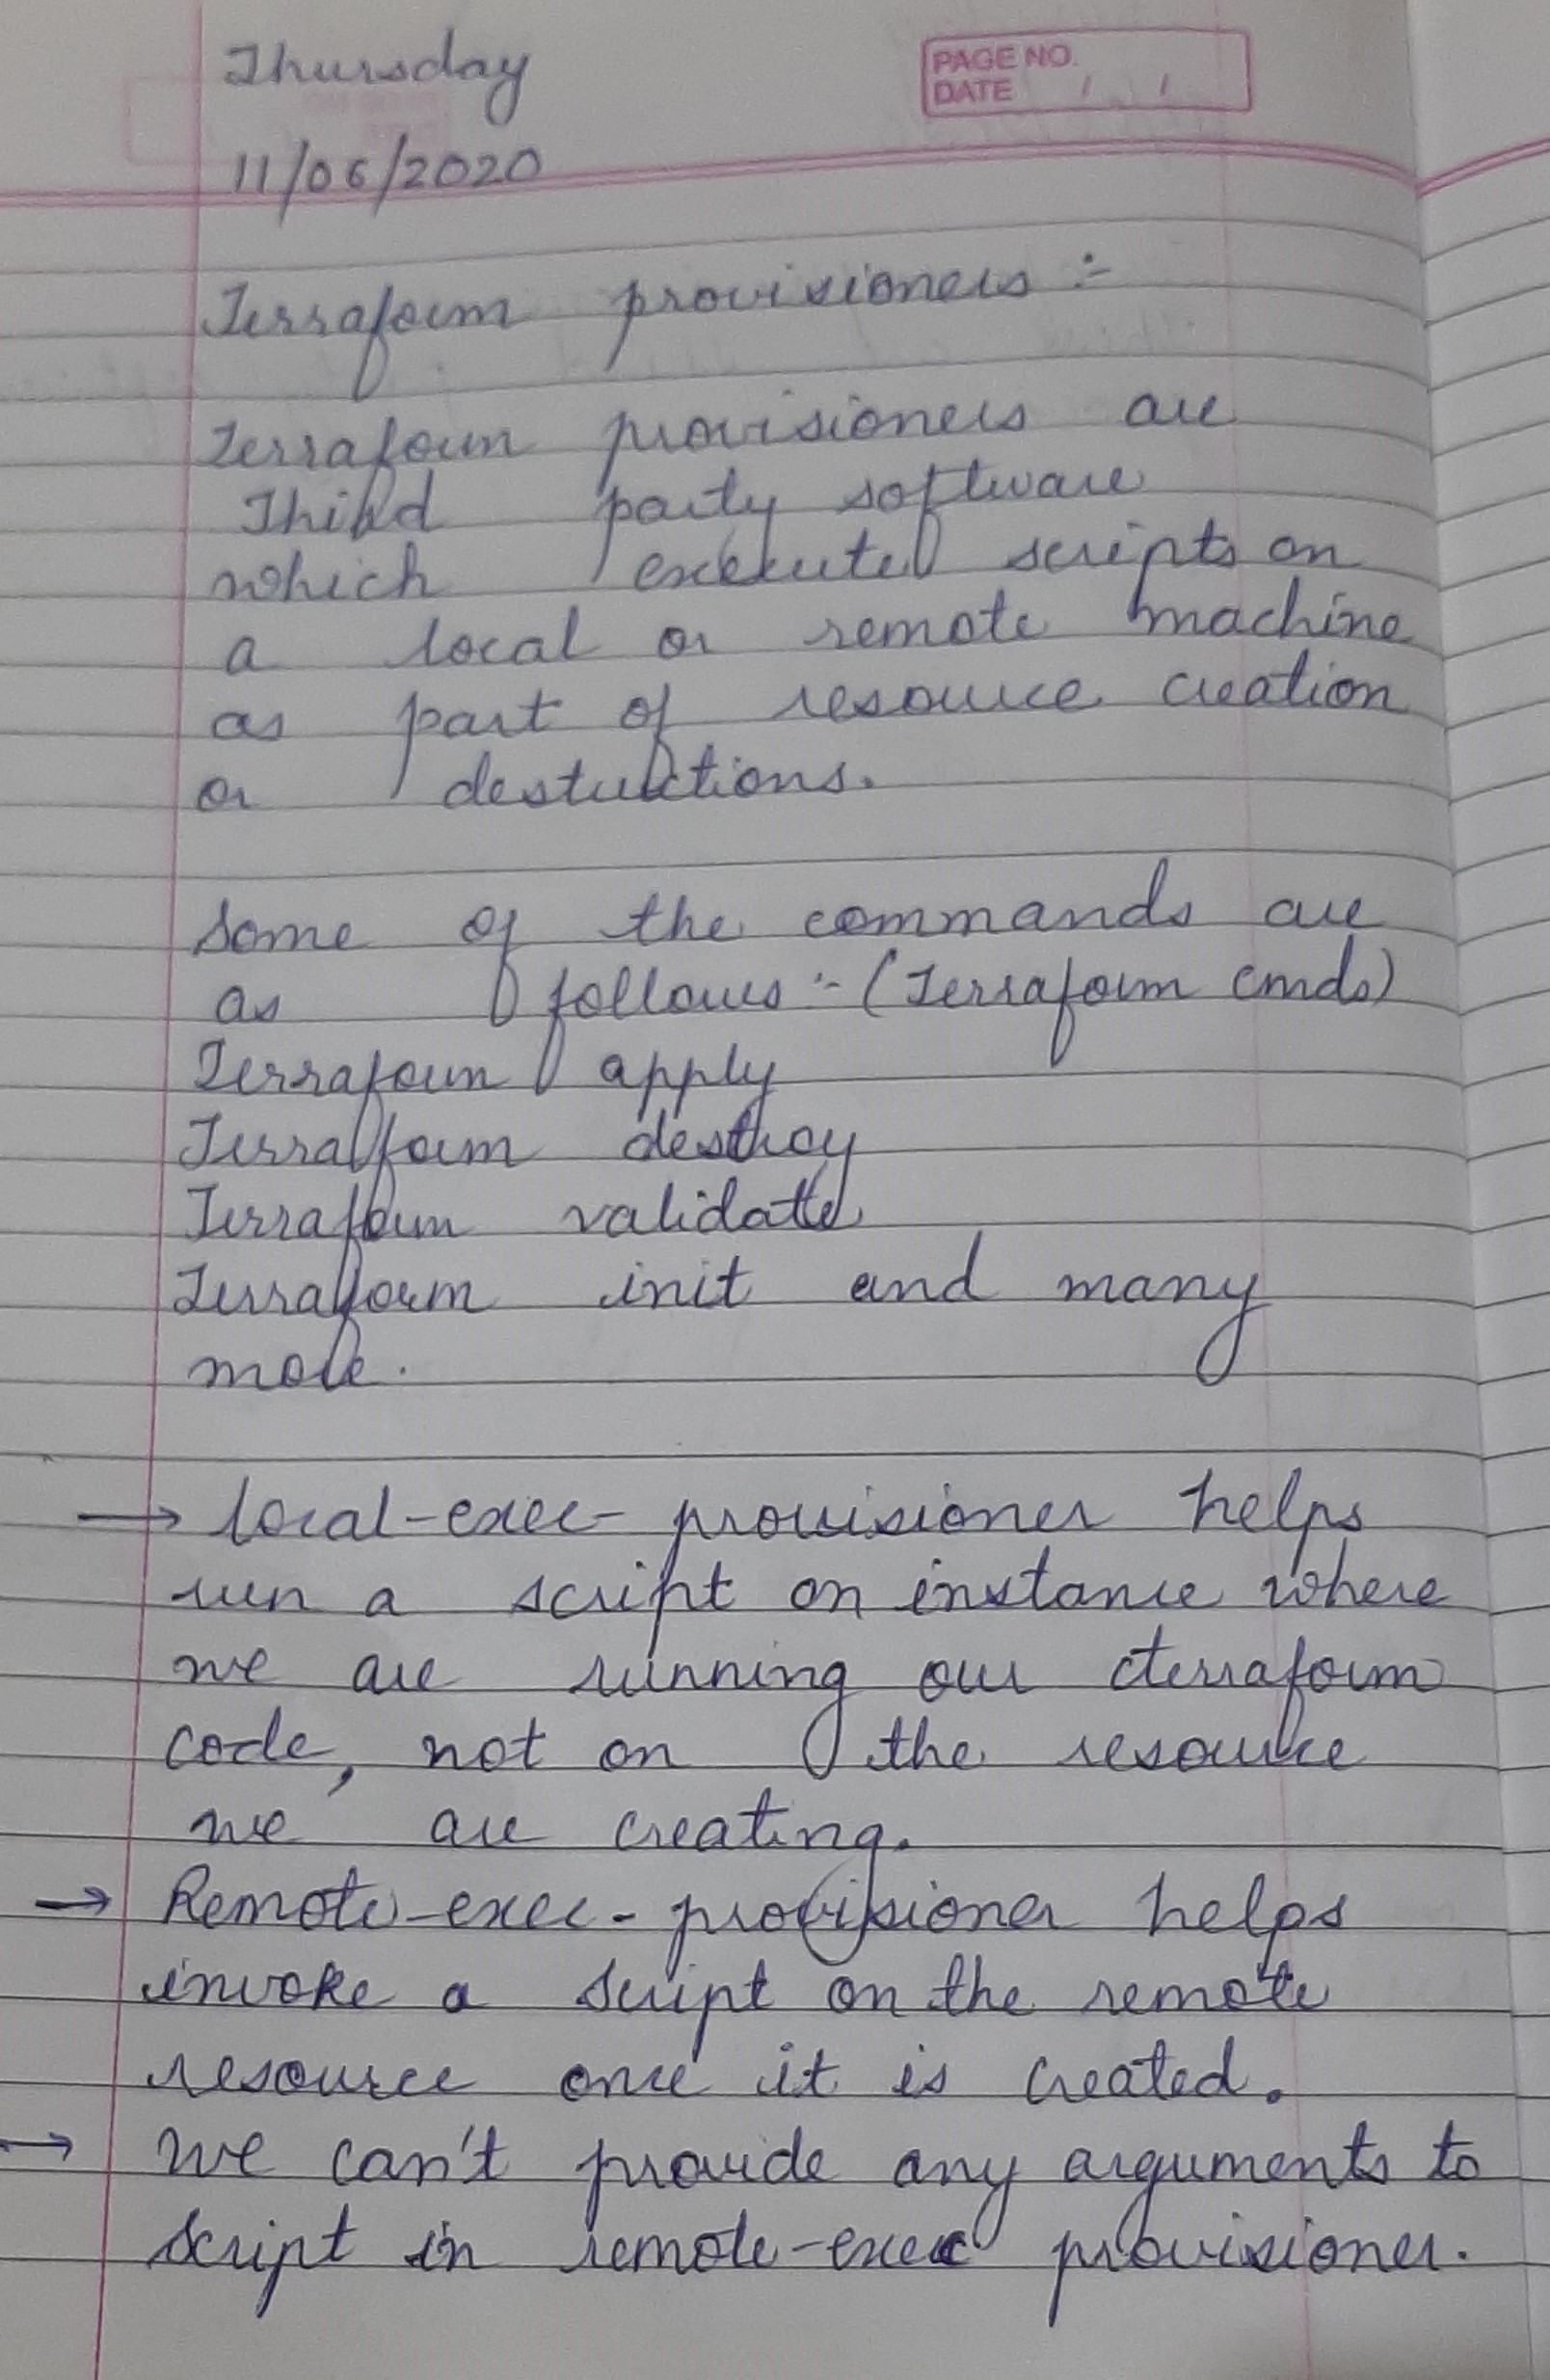 Thursday
PAGE NO.
DATE / /
11/06/2020
Terraform provisioners :-
Terraform provisioners are
Third party software
which execute scripts on
a local or remote machine
as part of resource creation
or destructions.
Some of the commands are
as follows :- (Terraform cmds)
Terraform apply
Terraform destroy
Terraform validate
Terraform init and many
more.
→ local-exec- provisioner helps
run a script on instance where
we are running our terraform
code, not on the resource
we are creating.
→ Remote-exec- provisioner helps
invoke a script on the remote
resource once it is created.
→ we can't provide any arguments to
script in remote-exec provisioner.